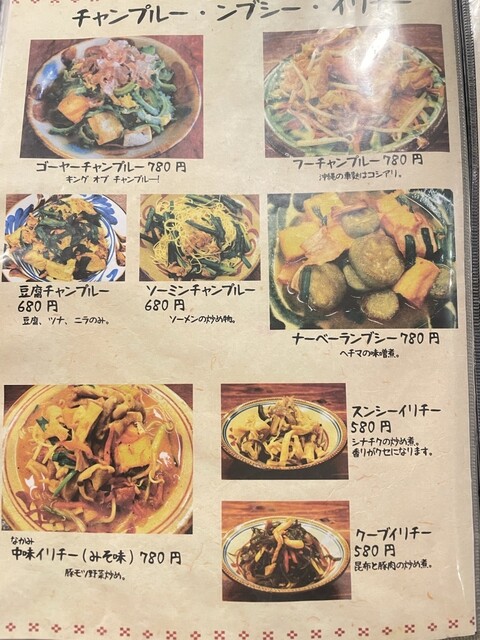 チャンプルー・ンブシー・イリチー
ゴーヤーチャンプルー 780円
キング オブ チャンプルー!
フーチャンプルー 780円
沖縄の車麩はコシアリ。
豆腐チャンプルー
680円
豆腐、ツナ、ニラのみ。
ソーミンチャンプルー
680円
ソーメンの炒め物。
ナーベーランブシー 780円
ヘチマの味噌煮。
スンシーイリチー
580円
シナチクの炒め煮。
香りがクセになります。
なかみ
中味イリチー(みそ味) 780円
豚モツ野菜炒め。
クーブイリチー
580円
昆布と豚肉の炒め煮。